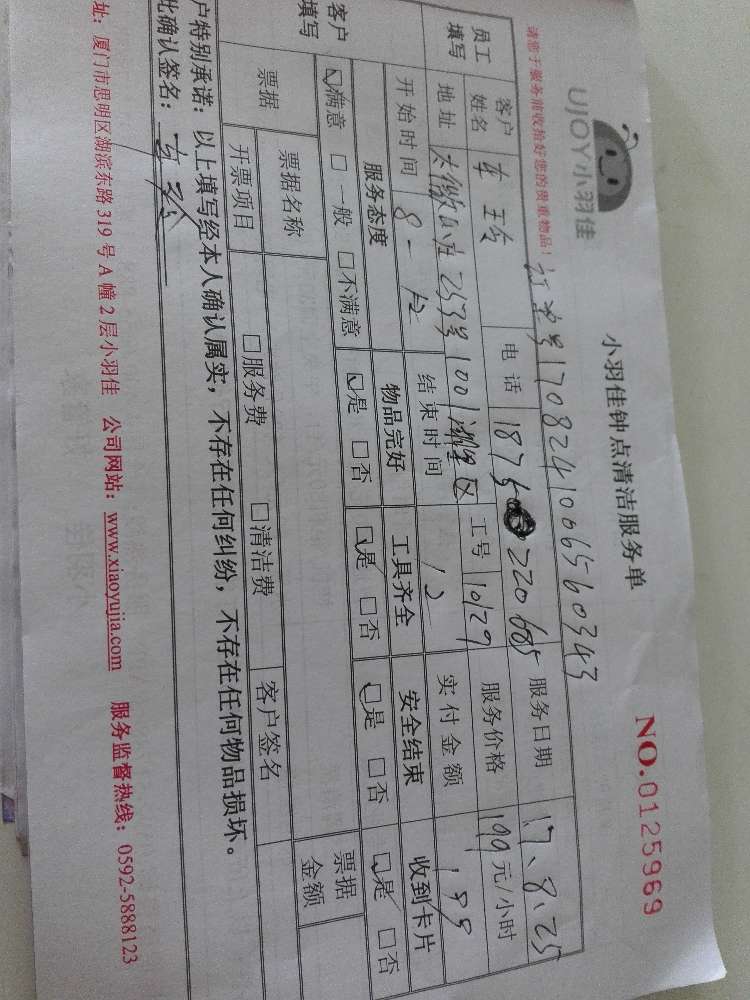 UJOY小羽佳
小羽佳钟点清洁服务单
NO.0125969
请您于服务前收拾好您的贵重物品！
订单号1708241066560343
员工填写 客户姓名 车玲 电话 1875 220685 服务日期 17.8.25
地址 253号1001 工号 10129 服务价格 199元/小时
开始时间 8- 结束时间 12 实付金额 199
客户填写 服务态度 物品完好 工具齐全 安全结束 收到卡片
☑满意 □一般 □不满意 ☑是 □否 ☑是 □否 ☑是 □否 ☑是 □否
票据 票据名称 票据金额
开票项目 □服务费 □清洁费 客户签名
户特别承诺：以上填写经本人确认属实，不存在任何纠纷，不存在任何物品损坏。
此确认签名：
址：厦门市思明区湖滨东路319号A幢2层小羽佳 公司网站：www.xiaoyujia.com 服务监督热线：0592-5888123